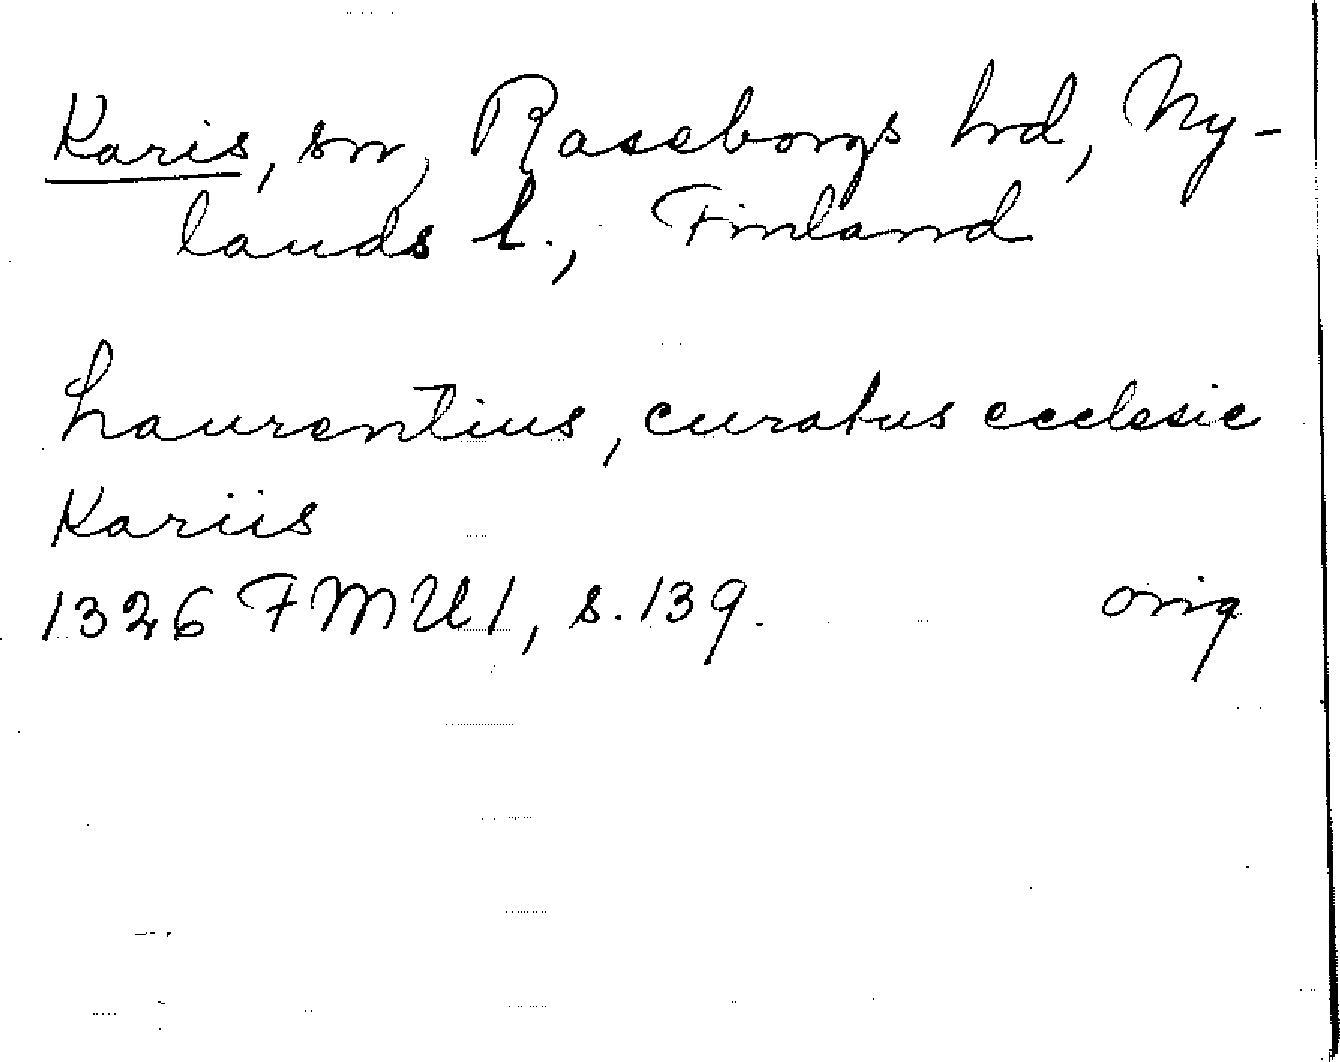 Karis, sn, Raseborgs hrd, Ny-
lands l., Finland
Laurentius, curatus ecclesie
Kariis
1326 FMU 1, s. 139. orig